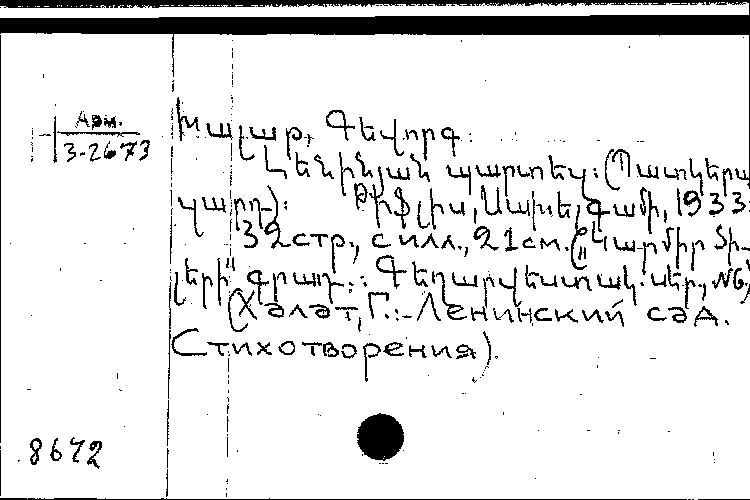 Арм.
3-2673
Խալաթ, Գեվորգ.
Լենինյան պարտեզ: (Պատկերա-
զարդ): Թիֆլիս, Անդրկ
1933.
32 стр., с илл., 21 см. („Կարմիր ծի-
լեր“ գրադ.: Գեղարվեստակ. սեր., №6)
(Хәләт, Г.:-Ленинский сәд.
Стихотворения).
8672